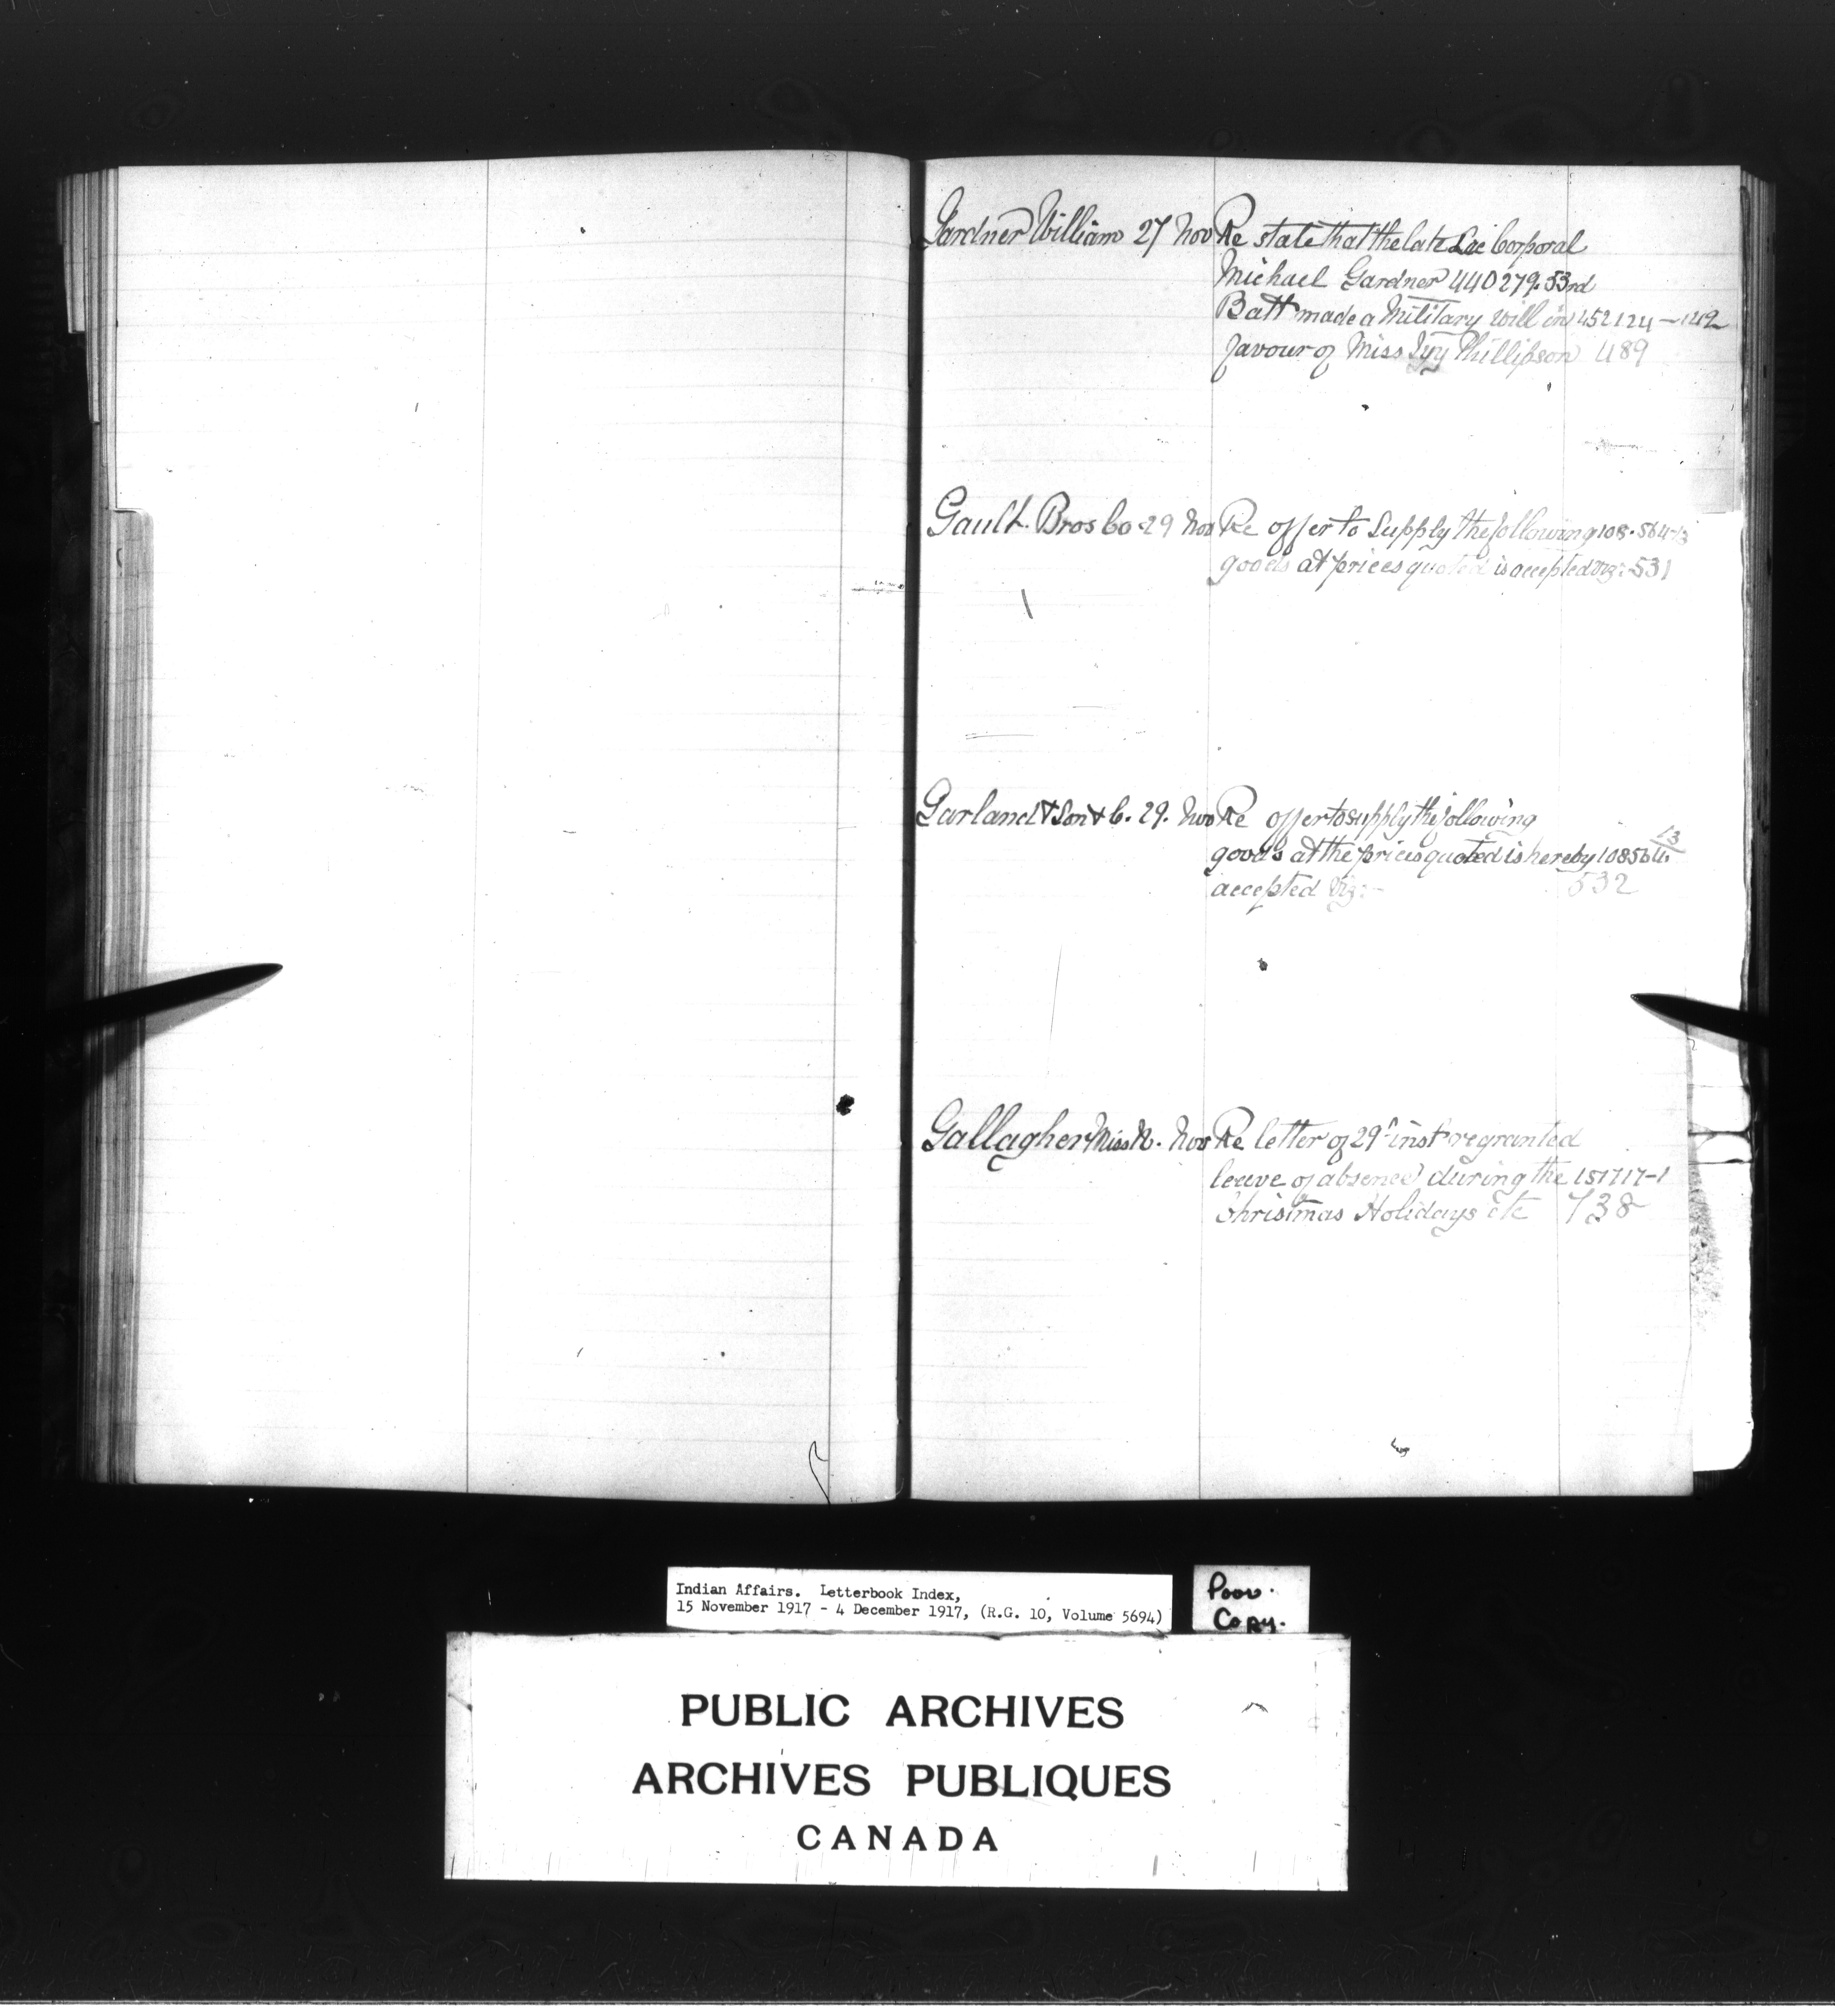 Gardner William 27 Nov Re state that the late Lce Corporal
Michael Gardner 440279. 53rd
Batt made a Military Will in 452124-142
favour of Miss Ivy Phillipson 489
Gault Bros Co 29 Nov Re offer to Supply the following 108.564-13
goods at prices quoted is accepted viz:- 531
Garland & Son & C. 29. Nov Re offer to supply the following
goods at the prices quoted is hereby 108564 13
accepted Viz:- 532
Gallagher Miss N. Nov Re letter of 29th inst re granted
leave of absence during the 151717-1
Christmas Holidays etc 738
Indian Affairs. Letterbook Index,
15 November 1917 - 4 December 1917, (R.G. 10, Volume 5694)
Poor.
Copy.
PUBLIC ARCHIVES
ARCHIVES PUBLIQUES
CANADA